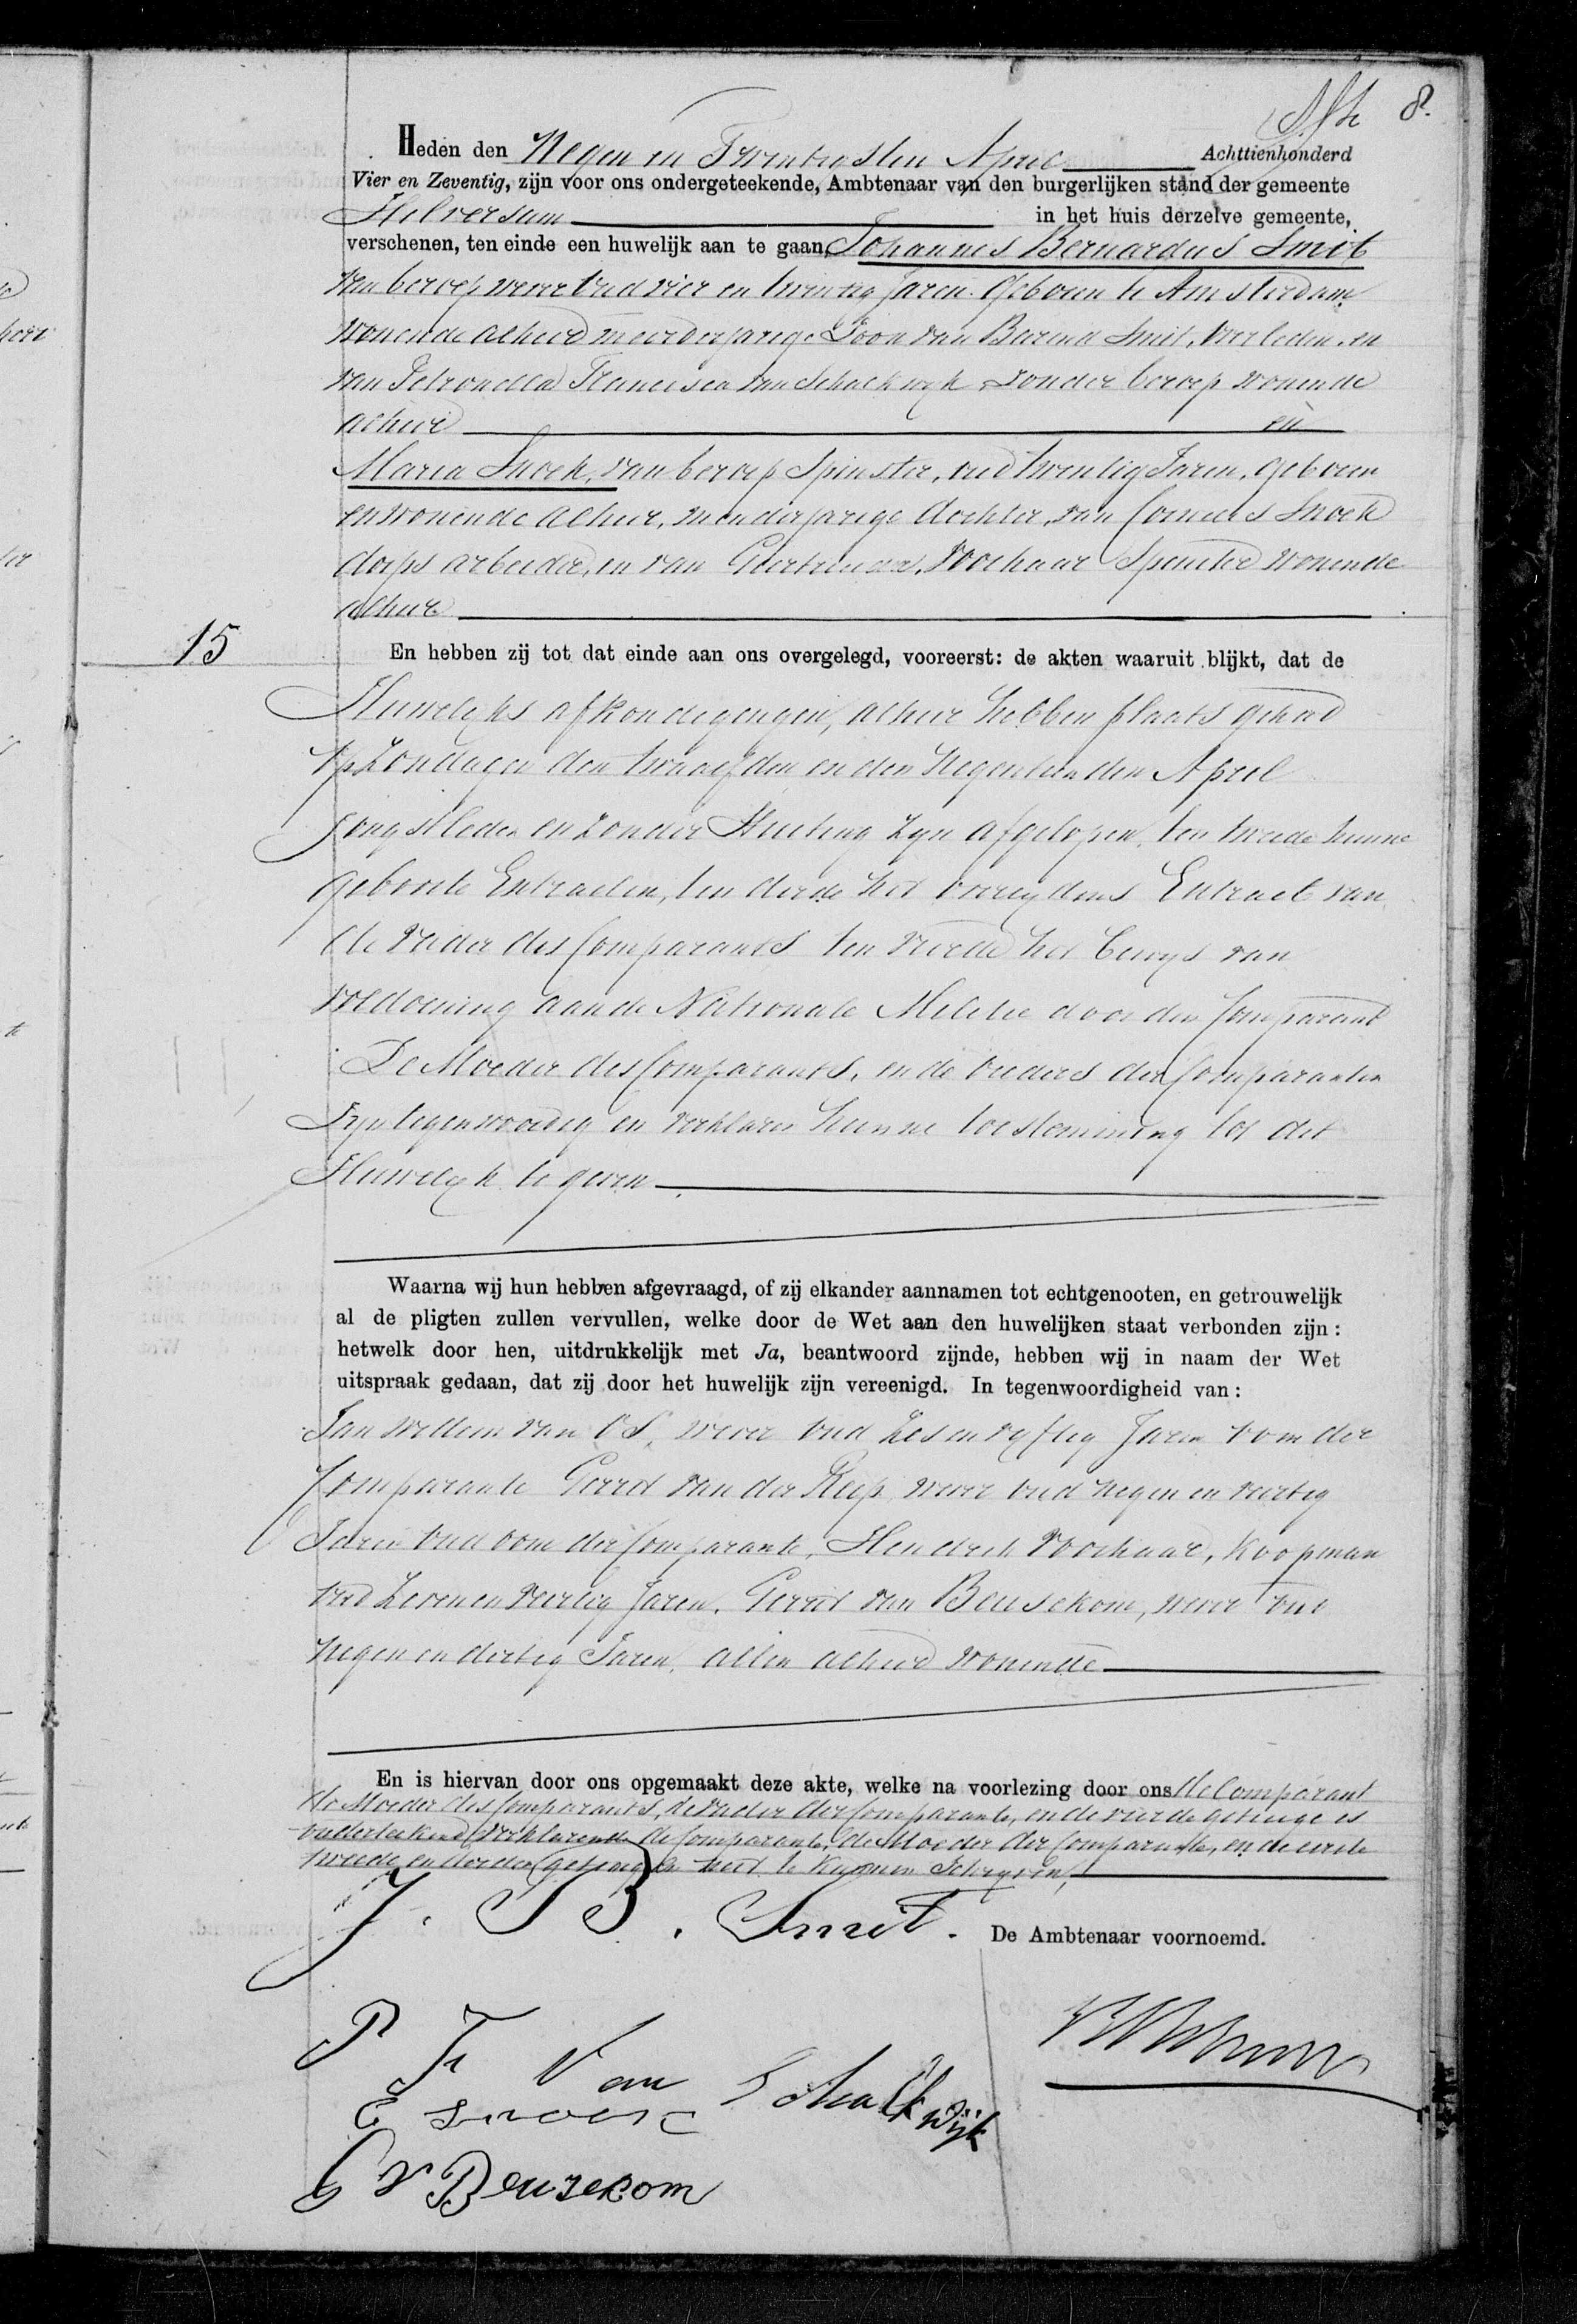 8.
Heden den Negen en Twintigsten April Achttienhonderd
Vier en Zeventig, zijn voor ons ondergeteekende, Ambtenaar van den burgerlijken stand der gemeente
Hilversum in het huis derzelve gemeente,
verschenen, ten einde een huwelijk aan te gaan, Johannes Bernardus Smit
van beroep wever oud vier en twintig Jaren. Geboren te Amsterdam
wonende alhier meerderjarige Zoon van Barend Smit, overleden, en
van Petronella Francisca van Schalkwyk zonder beroep wonende
alhier en
Maria Snoek, van beroep Spinster, oud twintig Jaren, geboren
en wonende alhier, minderjarige dochter, van Cornelis Snoek
dorps arbeider, en van Geertruida, Voorhaar Spinster wonende
alhier
15
En hebben zij tot dat einde aan ons overgelegd, vooreerst: de akten waaruit blijkt, dat de
Huwelyks afkondigingen, alhier hebben plaats gehad
op Zondagen den twaalfden en den Negentienden April
jongstleden en zonder Stuiting zyn afgelopen, ten tweede hunne
geboorte Extracten, ten derde het overlydens Extract van
de Vader des Comparants ten vierde het bewys van
voldoening aan de Nationale Militie door den Comparant
De Moeder des Comparants, en de ouders der Comparanten
Zyn tegenwoordig en verklaren hunne toestemming tot dit
Huwelyk te geven
Waarna wij hun hebben afgevraagd, of zij elkander aannamen tot echtgenooten, en getrouwelijk
al de pligten zullen vervullen, welke door de Wet aan den huwelijken staat verbonden zijn:
hetwelk door hen, uitdrukkelijk met Ja, beantwoord zijnde, hebben wij in naam der Wet
uitspraak gedaan, dat zij door het huwelijk zijn vereenigd. In tegenwoordigheid van:
Jan Willem van Os, wever oud Zes en vyftig Jaren oom der
Comparante Gerrit van der Keep, wever oud negen en veertig
Jaren oud oom der Comparante, Hendrik Voorhaar, Koopman
oud Zeven en Veertig Jaren, Gerrit van Beusekom, wever oud
negen en dertig Jaren, allen alhier wonende
En is hiervan door ons opgemaakt deze akte, welke na voorlezing door ons de Comparant
de Moeder des Comparants, de vader der Comparante, en de vierde getuige is
onderteekend verklarende de Comparante, de Moeder der Comparante, en de eerste
tweede en derde getuigen niet te kunnen Schryven,
J. B. Smit. De Ambtenaar voornoemd.
P F Van Schalkwijk
C Snoek
G V Beusekom